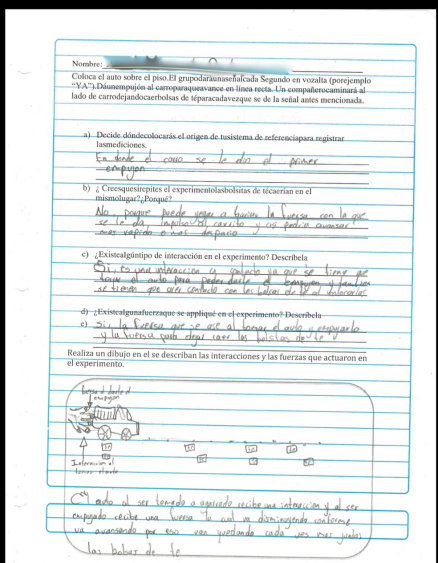 Nombre:
Coloca el auto sobre el piso.El grupodaráunaseñalcada Segundo en vozalta (porejemplo
“YA”).Dáunempujón al carroparaqueavance en línea recta. Un compañerocaminará al
lado de carrodejandocaerbolsas de téparacadavezque se de la señal antes mencionada.
a) Decide dóndecolocarás el origen de tusistema de referenciapara registrar
lasmediciones.
En donde el carro se le dio el primer
empujon
b) ¿ Creesquesirepites el experimentolasbolsitas de técaerían en el
mismolugar?¿Porqué?
No, porque puede variar la fuersa con la que
se le da impulso al carrito y asi podria avansar
mas rapido o mas despacio
c) ¿Existealgúntipo de interacción en el experimento? Descríbela
Si, es una interacción de contacto ya que se tiene que
tocar el auto para poder darle el empujon y tambien
se tienen que aver contacto con las bolsas de te al
d) ¿Existealgunafuerzaque se appliqué en el experimento? Descríbela
e) Si, la fuersa que se ase al tomar el auto y empujarlo
y la fuersa para dejar caer las bolsitas de te
Realiza un dibujo en el se describan las interacciones y las fuerzas que actuaron en
el experimento.
fuersa al darle el
empujon
Interaccion al
tomar el auto
El auto al ser tomado o agarrado recibe una interaccion y al ser
empujado recibe una fuersa la cual va disminuyendo conforme
va avansando por eso van quedando cada ves mas juntas
las bolsas de te